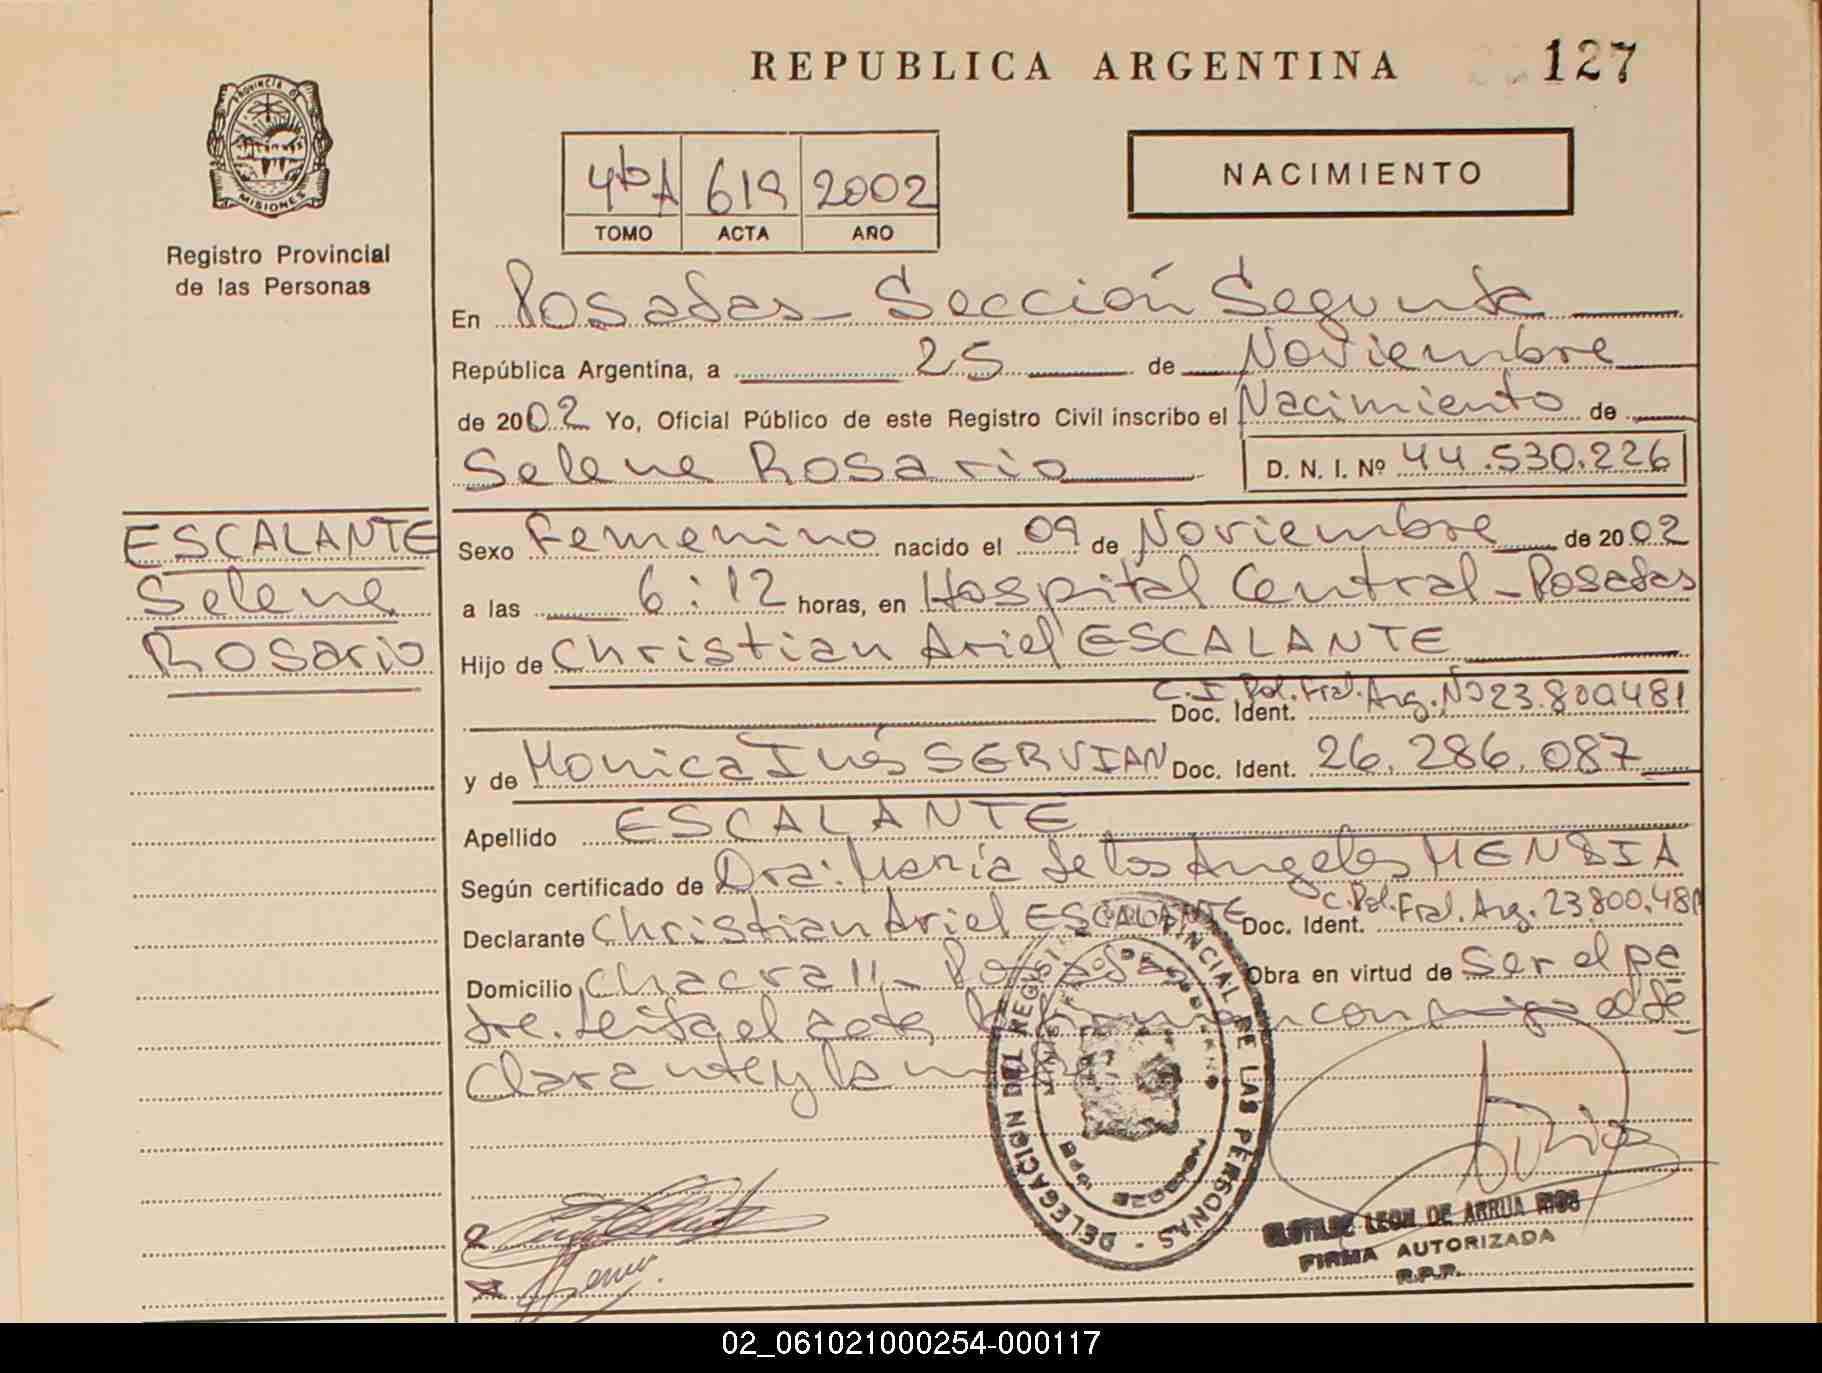 REPUBLICA ARGENTINA
127
PROVINCIA DE
MISIONES
Registro Provincial
de las Personas
4tº A 619 2002
TOMO ACTA AÑO
NACIMIENTO
En Posadas - Sección Segunda
República Argentina, a 25 de Noviembre
de 2002 Yo, Oficial Público de este Registro Civil inscribo el Nacimiento de
Selene Rosario D. N. I. Nº 44.530.226
ESCALANTE
Selene
Rosario
Sexo Femenino nacido el 09 de Noviembre de 2002
a las 6:12 horas, en Hospital Central - Posadas
Hijo de Christian Ariel ESCALANTE
Doc. Ident. C. I. Pol. Fral. Arg. Nº 23.800.481
y de Monica Inés SERVIAN Doc. Ident. 26.286.087
Apellido ESCALANTE
Según certificado de Dra: María de los Angeles MENDIA
Declarante Christian Ariel ESCALANTE Doc. Ident. C. Pol. Fral. Arg. 23.800.481
Domicilio Chacra 11 - Posadas Obra en virtud de ser el pa
dre. Leída el acta, la firman conmigo el de
clarante y la
DELEGACION DEL REGISTRO PROVINCIAL DE LAS PERSONAS
LEON DE ARRUA RIOS
FIRMA AUTORIZADA
R.P.P.
02_061021000254-000117